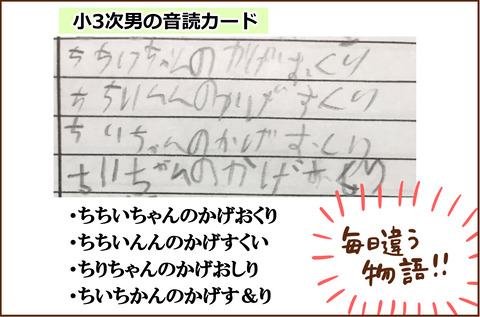 小3次男の音読カード
ちちいちゃんのかげおくり
ちちいんんのかげすくい
ちりちゃんのかげおしり
ちいちかんのかげす&り
・ちちいちゃんのかげおくり
・ちちいんんのかげすくい
・ちりちゃんのかげおしり
・ちいちかんのかげす&り
毎日違う
物語!!